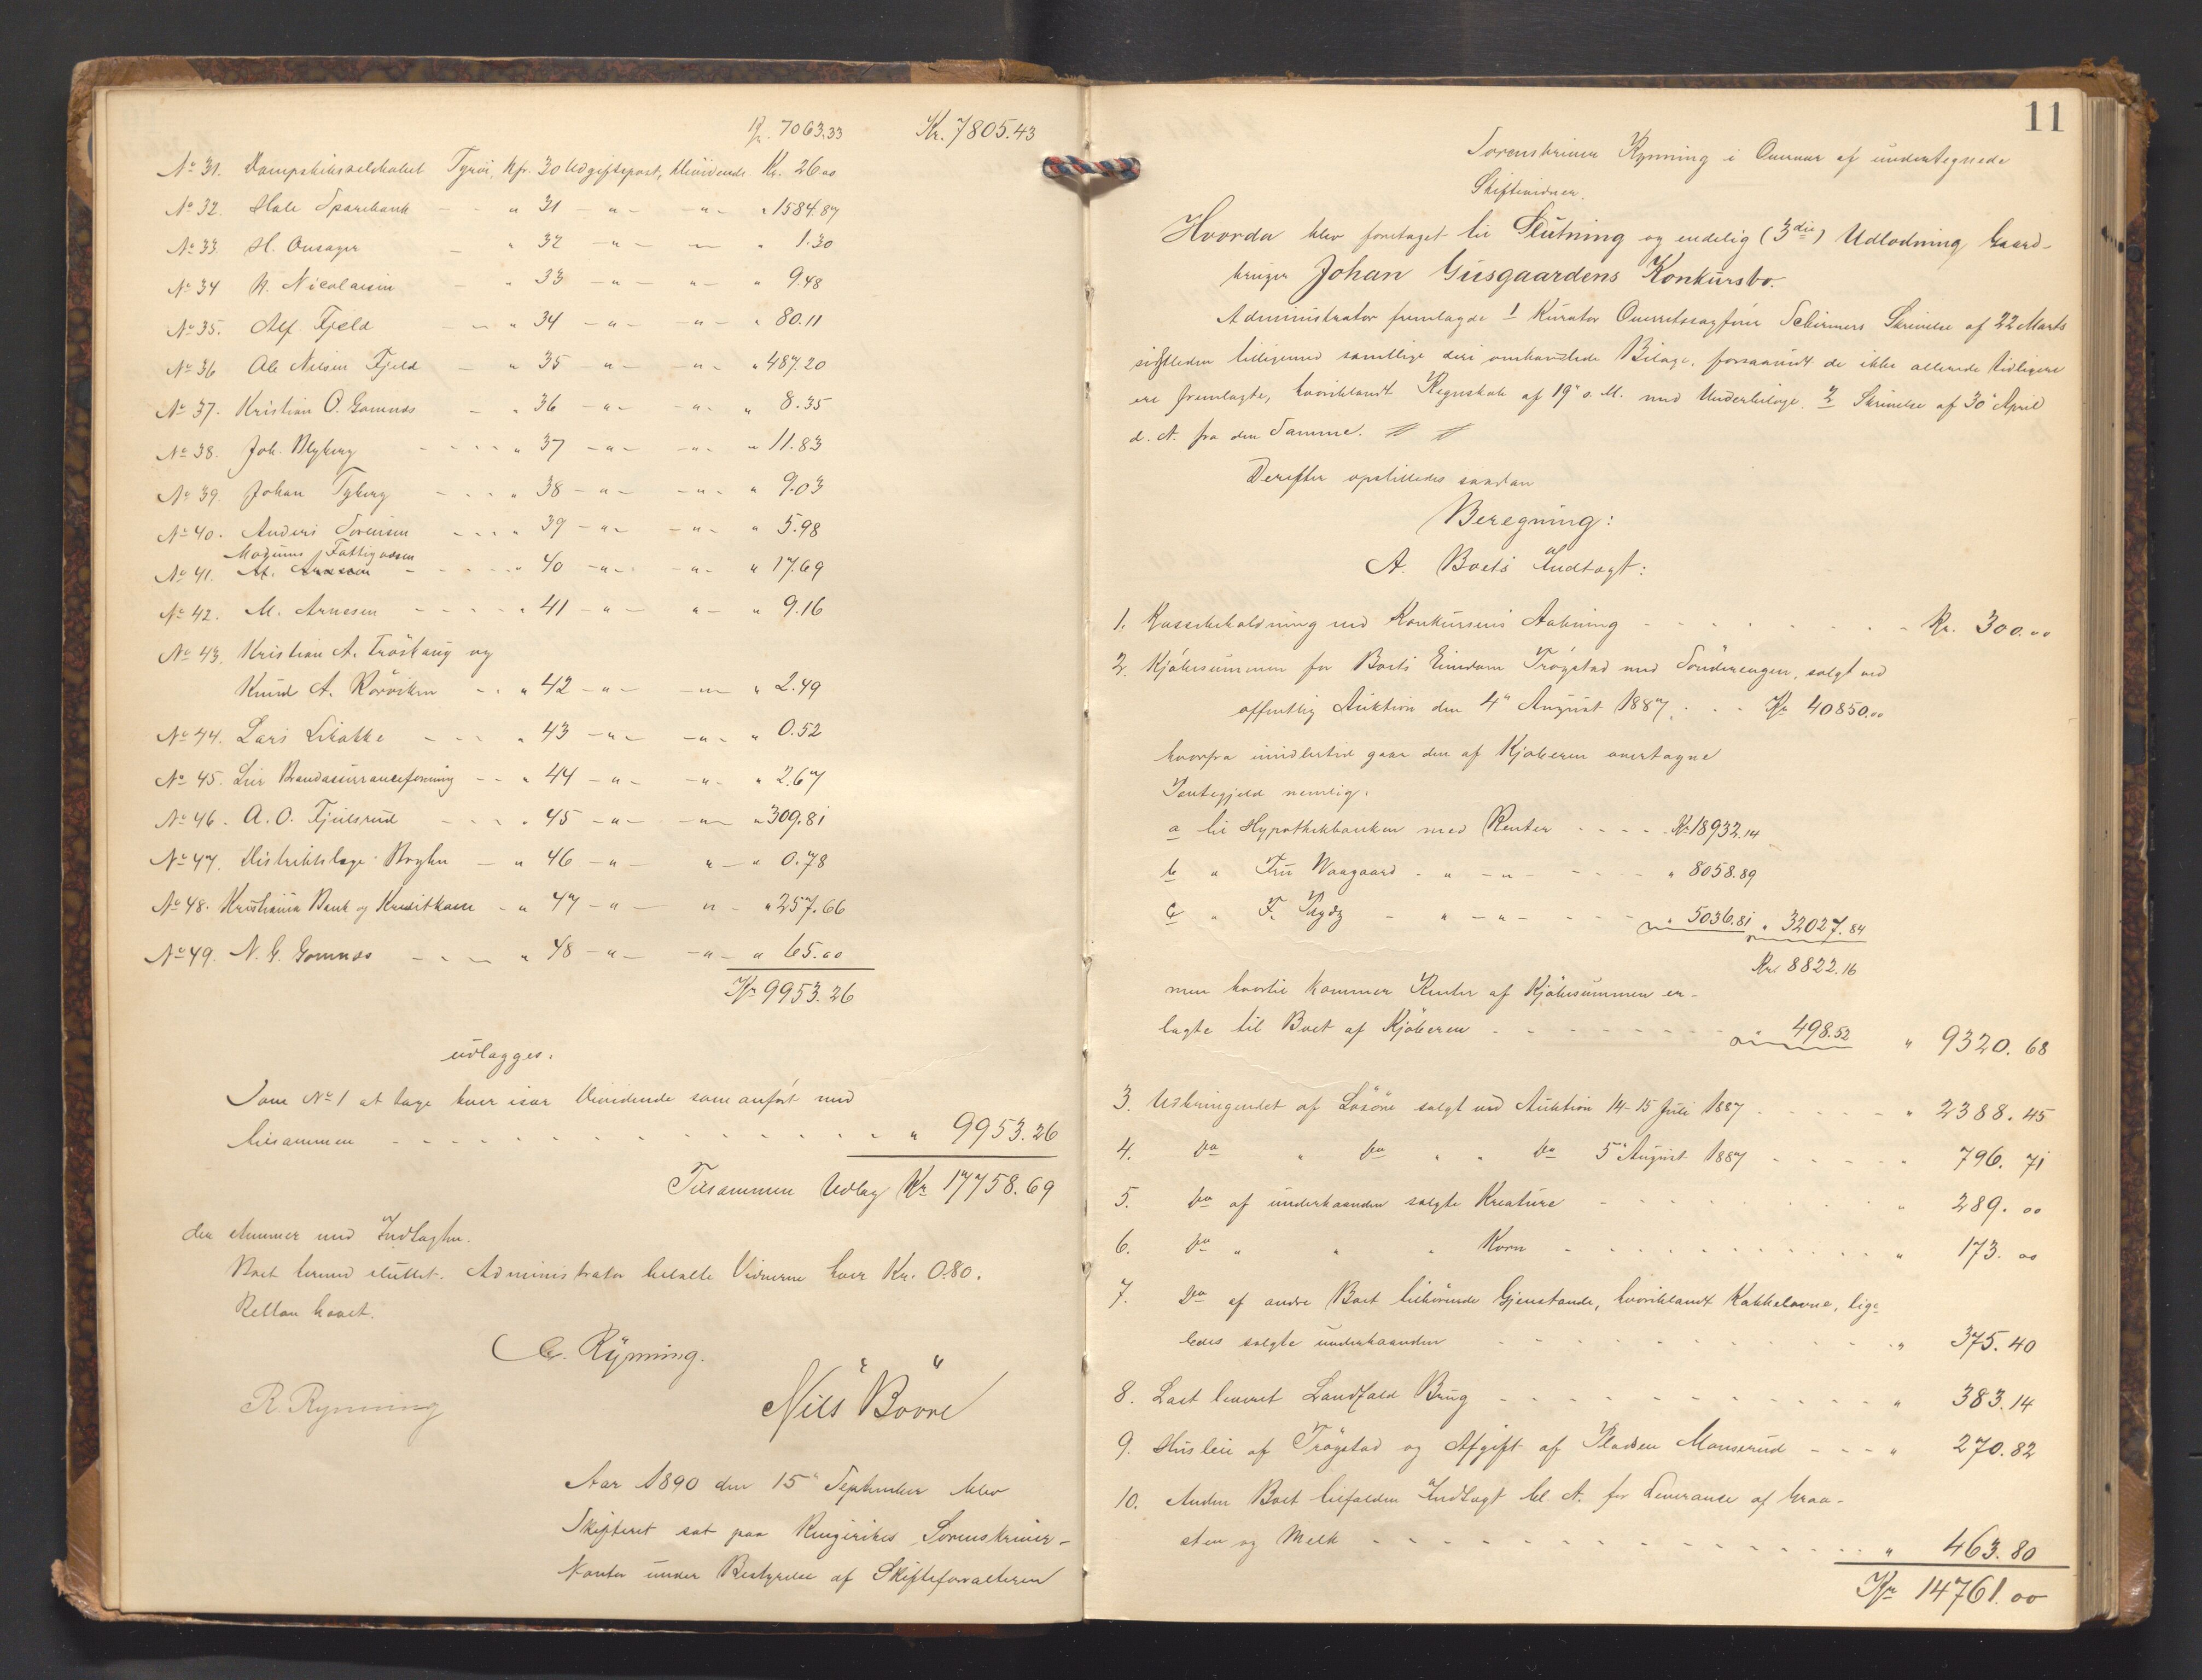 Kr. 7063.33 Kr. 7805.43
No 31. Dampskibsselskabet Tyrin, kfr. 30 Udgiftspost, Dividende Kr. 26.00
No 32. Hole Sparebank - - " 31 - " - - " - " 1584.87
No 33. H. Onsager - " 32 - " - - " 1.30
No 34 A. Nicolaisen - " 33 - " - " - " 9.48
No 35. Alf. Fjeld - - " 34 - " - - " - " 80.11
No 36 Ole Nilsen Fjeld - " 35 - " - - " - " 487.20
No 37. Kristian O. Gomnæs - " 36 - " - - " - " 8.35
No 38. Joh. Blyberg - - - - " 37 - " - - " - " 11.83
No 39. Johan Tyberg - - - " 38 - " - - " - " 9.03
No 40. Anders Sørensen - - - " 39 - " - - " - " 5.98
Modums Fattigvæsen
No 41. M. Arnesen - - - " 40 - " - - " - " 17.69
No 42. M. Arnesen - - - - " 41 - " - " - " 9.16
No 43. Kristian A. Frøshaug og
Knud A. Rørviken - - " 42 - " - - " - " 2.49
No 44. Lars Libakke - - - " 43 - " - - " - " 0.52
No 45. Lier Brandassuranceforening - - " 44 - " - - " - " 2.67
No 46. A. O. Fjeilsrud - - - " 45 - " - - " - " 309.81
No 47. Distriktslæge Bryhn - " 46 - " - " - " 0.78
No 48. Kristiania Bank og Kreditkasse - " 47 - " - " - " 257.66
No 49. N. G. Gomnæs - - - " 48 - " - - " - " 65.00
Kr 9953.26
udlægges.
Som No 1 at tage hver især Dividende som anført med
tilsammen - - - - - - - - - - - - " 9953.26
Tilsammen Udlæg Kr 17758.69
der stemmer med Indtægten.
Boet hermed sluttet. Administrator betalte Vidnerne hver Kr. 0.80.
Retten hævet.
C. Rynning.
R. Rynning
Nils Bövre
Aar 1890 den 15' September blev
Skifteret sat paa Ringerikes Sorenskriver-
Kontor under Bestyrelse af Skifteforvalteren
11
Sorenskriver Rynning i Overvær af undertegnede
Skiftevidner.
Hvorda blev foretaget til Slutning og endelig (3die) Udlodning Gaard-
bruger Johan Gusgaardens Konkursbo.
Administrator fremlagde 1 Kurator Overretssagfører Schirmers Skrivelse af 22 Marts
sidstleden tilligemed samtlige deri omhandlede Bilage, forsaavidt de ikke allerede tidligere
ere fremlagte, hvoriblandt Regnskab af 19' s. M. med Underbilage. 2 Skrivelse af 30' April
d. A. fra den Samme.
Derefter opstilledes saadan
Beregning:
A. Boets Indtægt:
1. Kassebeholdning ved Konkursens Aabning - - - - - - - - Kr. 300.00
2. Kjøbesummen for Boets Eiendom Trøgstad med Sønderengen, solgt ved
offentlig Auktion den 4' August 1887. - - Kr 40850.00
hvorfra imidlertid gaar den af Kjøberen overtagne
Pantegjeld nemlig:
a til Hypothekbanken med Renter - - - - Kr 18932.14
b " Fru Waagaard - " - " - - - - " 8058.89
c " F. Thydz - " - " - - - - " 5036.81 " 32027.84
Kr. 8822.16
men hvortil kommer Renter af Kjøbesummen er-
lagte til Boet af Kjøberen - - - - - - - " 498.52 " 9320.68
3. Udbringendet af Løsøre solgt ved Auktion 14-15 Juli 1887 - - - - - " 2388.45
4. Do " Do " " Do 5' August 1887 - - - - - " 796.71
5. Do af underhaanden solgte Kreature - - - - - - " 289.00
6. Do " " " Korn - - - - - - - - " 173.00
7. Do af andre Boet tilhørende Gjenstande, hvoriblandt Kakkelovne, lige-
ledes solgte underhaanden - - - - - - - - - " 375.40
8. Last leveret Landfald Brug - - - - - - - - - " 383.14
9. Husleie af Trøgstad og Afgift af Pladsen Monserud - - - " 270.82
10. Anden Boet tilfalden Indtægt bl. A. for Leverance af Graa-
sten og Melk - - - - - - - - - - - - " 463.80
Kr 14761.00